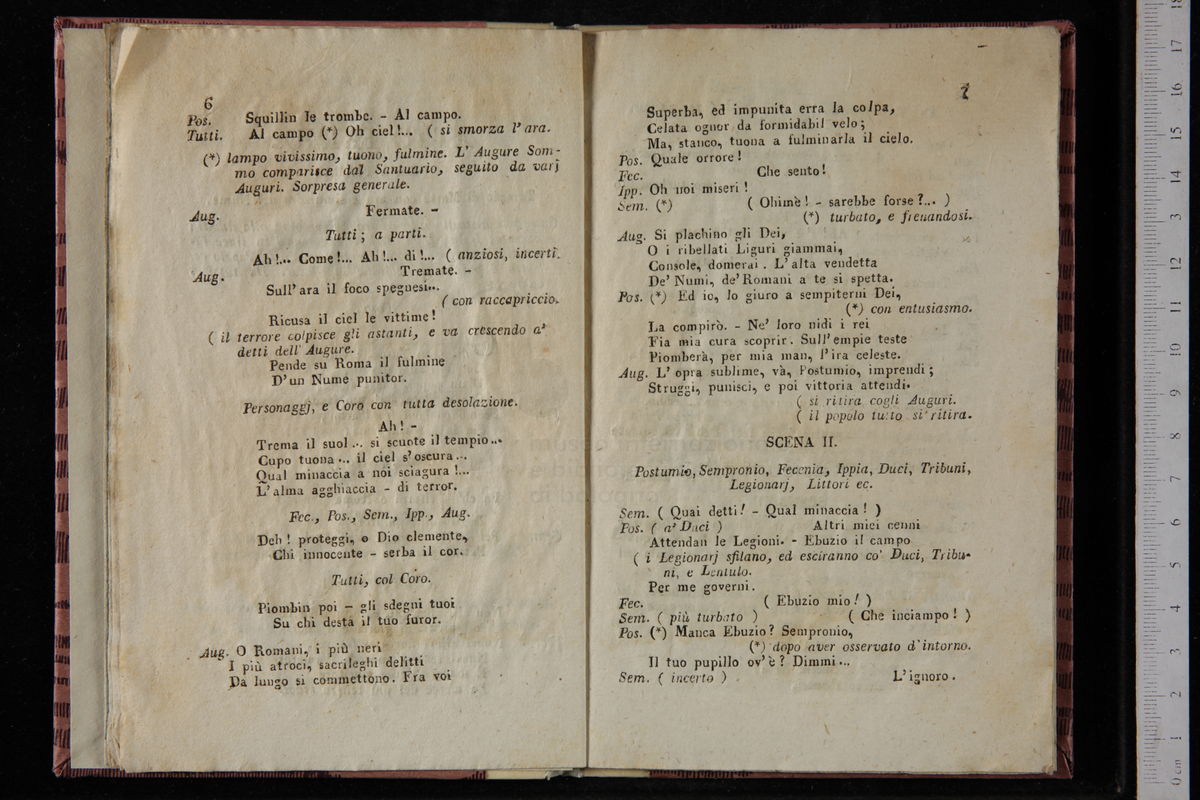 6
Pos. Squillin le trombe. - Al campo.
Tutti. Al campo (*) Oh ciel!... ( si smorza l'ara.
(*) lampo vivissimo, tuono, fulmine. L' Augure Som-
mo comparisce dal Santuario, seguito da varj
Auguri. Sorpresa generale.
Aug. Fermate. -
Tutti ; a parti.
Ah!... Come!... Ah!... dì!... ( anziosi, incerti.
Aug. Tremate. -
Sull' ara il foco spegnesi...
( con raccapriccio.
Ricusa il ciel le vittime!
( il terrore colpisce gli astanti, e va crescendo a'
detti dell' Augure.
Pende su Roma il fulmine
D'un Nume punitor.
Personaggj, e Coro con tutta desolazione.
Ah! -
Trema il suol ... si scuote il tempio...
Cupo tuona ... il ciel s'oscura ...
Qual minaccia a noi sciagura !...
L'alma agghiaccia - di terror.
Fec., Pos., Sem., Ipp., Aug.
Deh ! proteggi, o Dio clemente,
Chi innocente - serba il cor.
Tutti, col Coro.
Piombin poi - gli sdegni tuoi
Su chi desta il tuo furor.
Aug. O Romani, i più neri
I più atroci, sacrileghi delitti
Da lungo si commettono. Fra voi
7
Superba, ed impunita erra la colpa,
Celata ognor da formidabil velo;
Ma, stanco, tuona a fulminarla il cielo.
Pos. Quale orrore!
Fec. Che sento!
Ipp. Oh noi miseri !
Sem. (*) ( Ohimè! - sarebbe forse ?... )
(*) turbato, e frenandosi.
Aug. Si plachino gli Dei,
O i ribellati Liguri giammai,
Console, domerai . L'alta vendetta
De' Numi, de' Romani a te si spetta.
Pos. (*) Ed io, lo giuro a sempiterni Dei,
(*) con entusiasmo.
La compirò. - Ne' loro nidi i rei
Fia mia cura scoprir. Sull'empie teste
Piomberà, per mia man, l'ira celeste.
Aug. L' opra sublime, và, Postumio, imprendi ;
Struggi, punisci, e poi vittoria attendi.
( si ritira cogli Auguri.
( il popolo tutto si ritira.
SCENA II.
Postumio, Sempronio, Fecenia, Ippia, Duci, Tribuni,
Legionarj, Littori ec.
Sem. ( Quai detti! - Qual minaccia ! )
Pos. ( a' Duci ) Altri miei cenni
Attendan le Legioni. - Ebuzio il campo
( i Legionarj sfilano, ed esciranno co' Duci, Tribu-
ni, e Lentulo.
Per me governi.
Fec. ( Ebuzio mio! )
Sem. ( più turbato ) ( Che inciampo ! )
Pos. (*) Manca Ebuzio? Sempronio,
(*) dopo aver osservato d'intorno.
Il tuo pupillo ov'è ? Dimmi ...
Sem. ( incerto ) . L'ignoro .